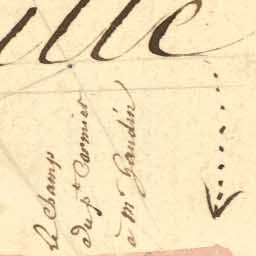 ille
Le Champ
du pt Cormier
à Mr Gaudin